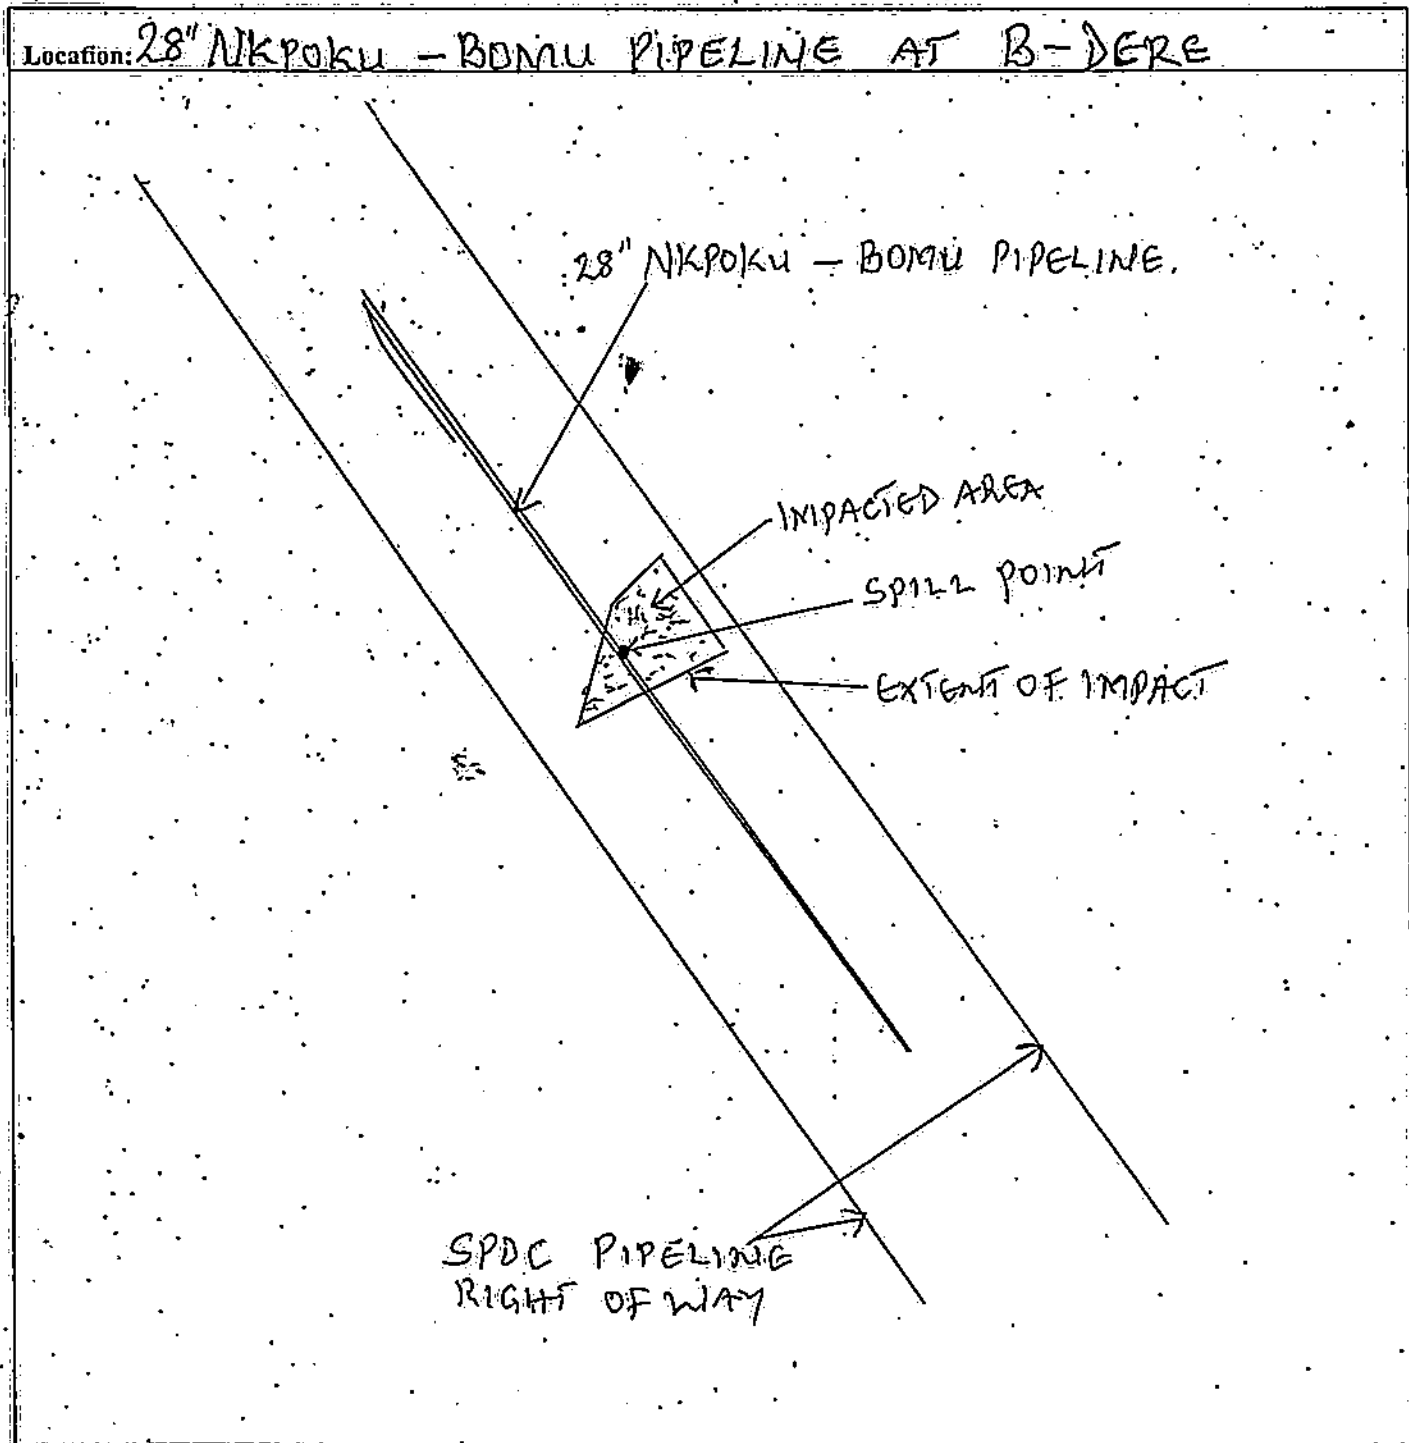 Location: 28" NKPOKU - BOMU PIPELINE AT B-DERE
28" NKPOKU - BOMU PIPELINE.
IMPACTED AREA
SPILL POINT
EXTENT OF IMPACT
SPDC PIPELINE
RIGHT OF WAY